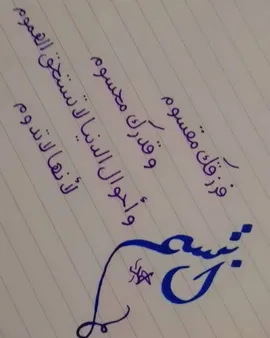 ابتسم
فرزقك مقسوم
وقدرك محسوم
وأحوال الدنيا لا تستحق الهموم
لأنها لا تدوم